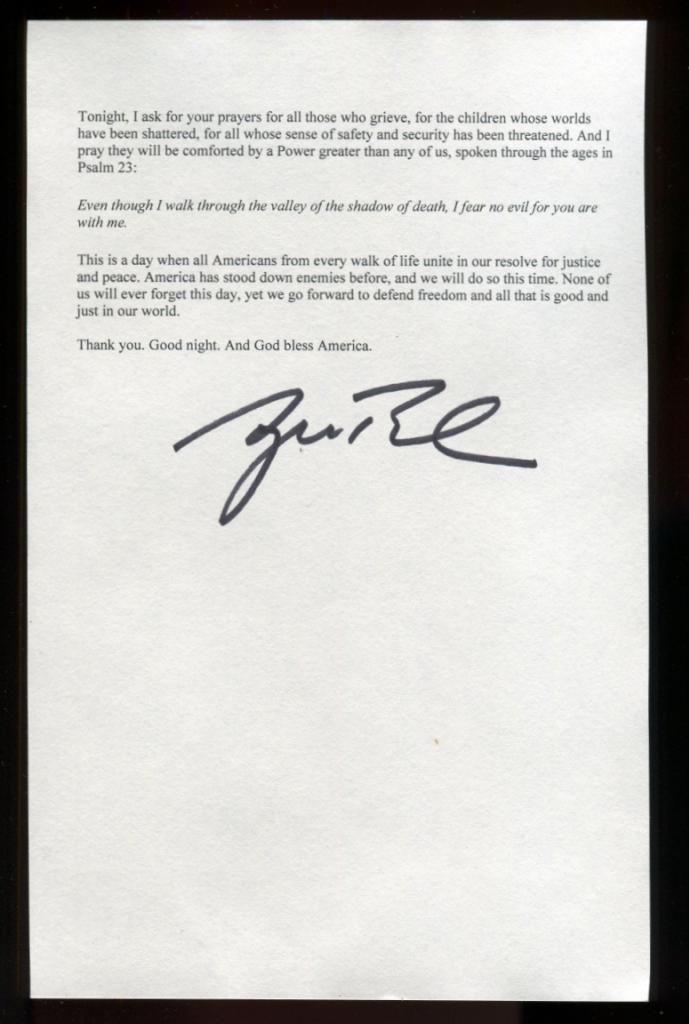 Tonight, I ask for your prayers for all those who grieve, for the children whose worlds
have been shattered, for all whose sense of safety and security has been threatened. And I
pray they will be comforted by a Power greater than any of us, spoken through the ages in
Psalm 23:
Even though I walk through the valley of the shadow of death, I fear no evil for you are
with me.
This is a day when all Americans from every walk of life unite in our resolve for justice
and peace. America has stood down enemies before, and we will do so this time. None of
us will ever forget this day, yet we go forward to defend freedom and all that is good and
just in our world.
Thank you. Good night. And God bless America.